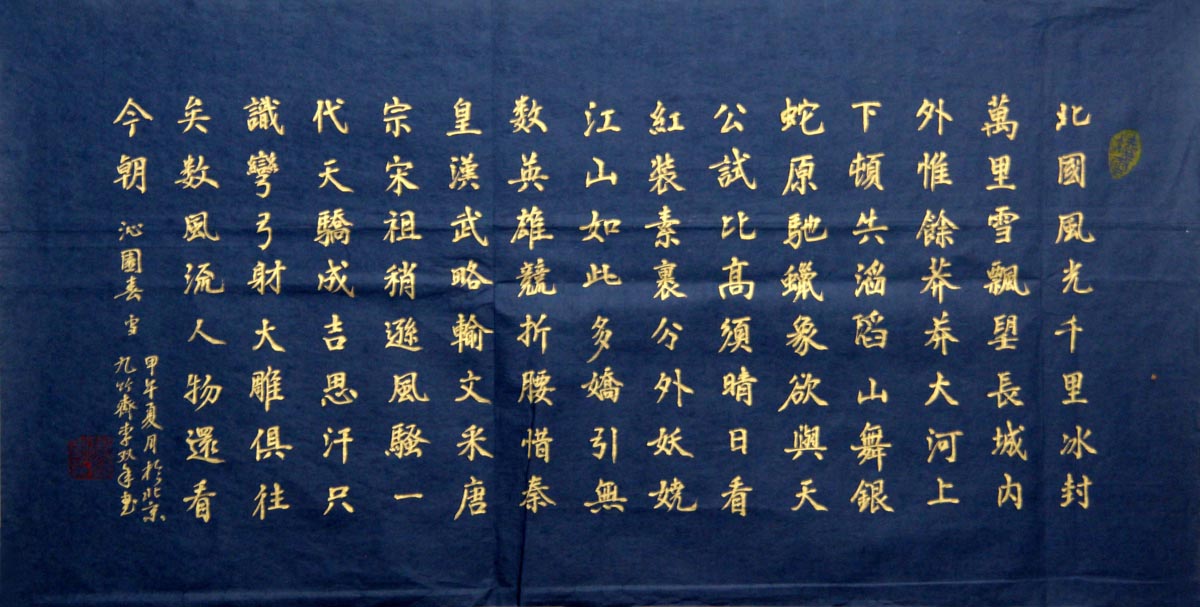 北國風光千里冰封
萬里雪飄望長城内
外惟餘莽莽大河上
下頓失滔滔山舞銀
蛇原馳蠟象欲與天
公試比高須晴日看
紅裝素裹分外妖嬈
江山如此多嬌引無
数英雄競折腰惜秦
皇漢武略輸文采唐
宗宋祖稍遜風騷一
代天驕成吉思汗只
識彎弓射大雕俱往
矣数風流人物還看
今朝 沁園春 雪
甲午夏月於北京
九竹齋李双年书